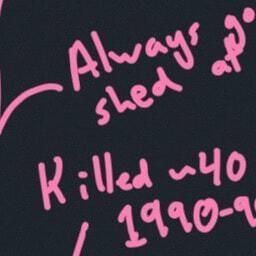 Always
shed at
Killed ~40
1990-9